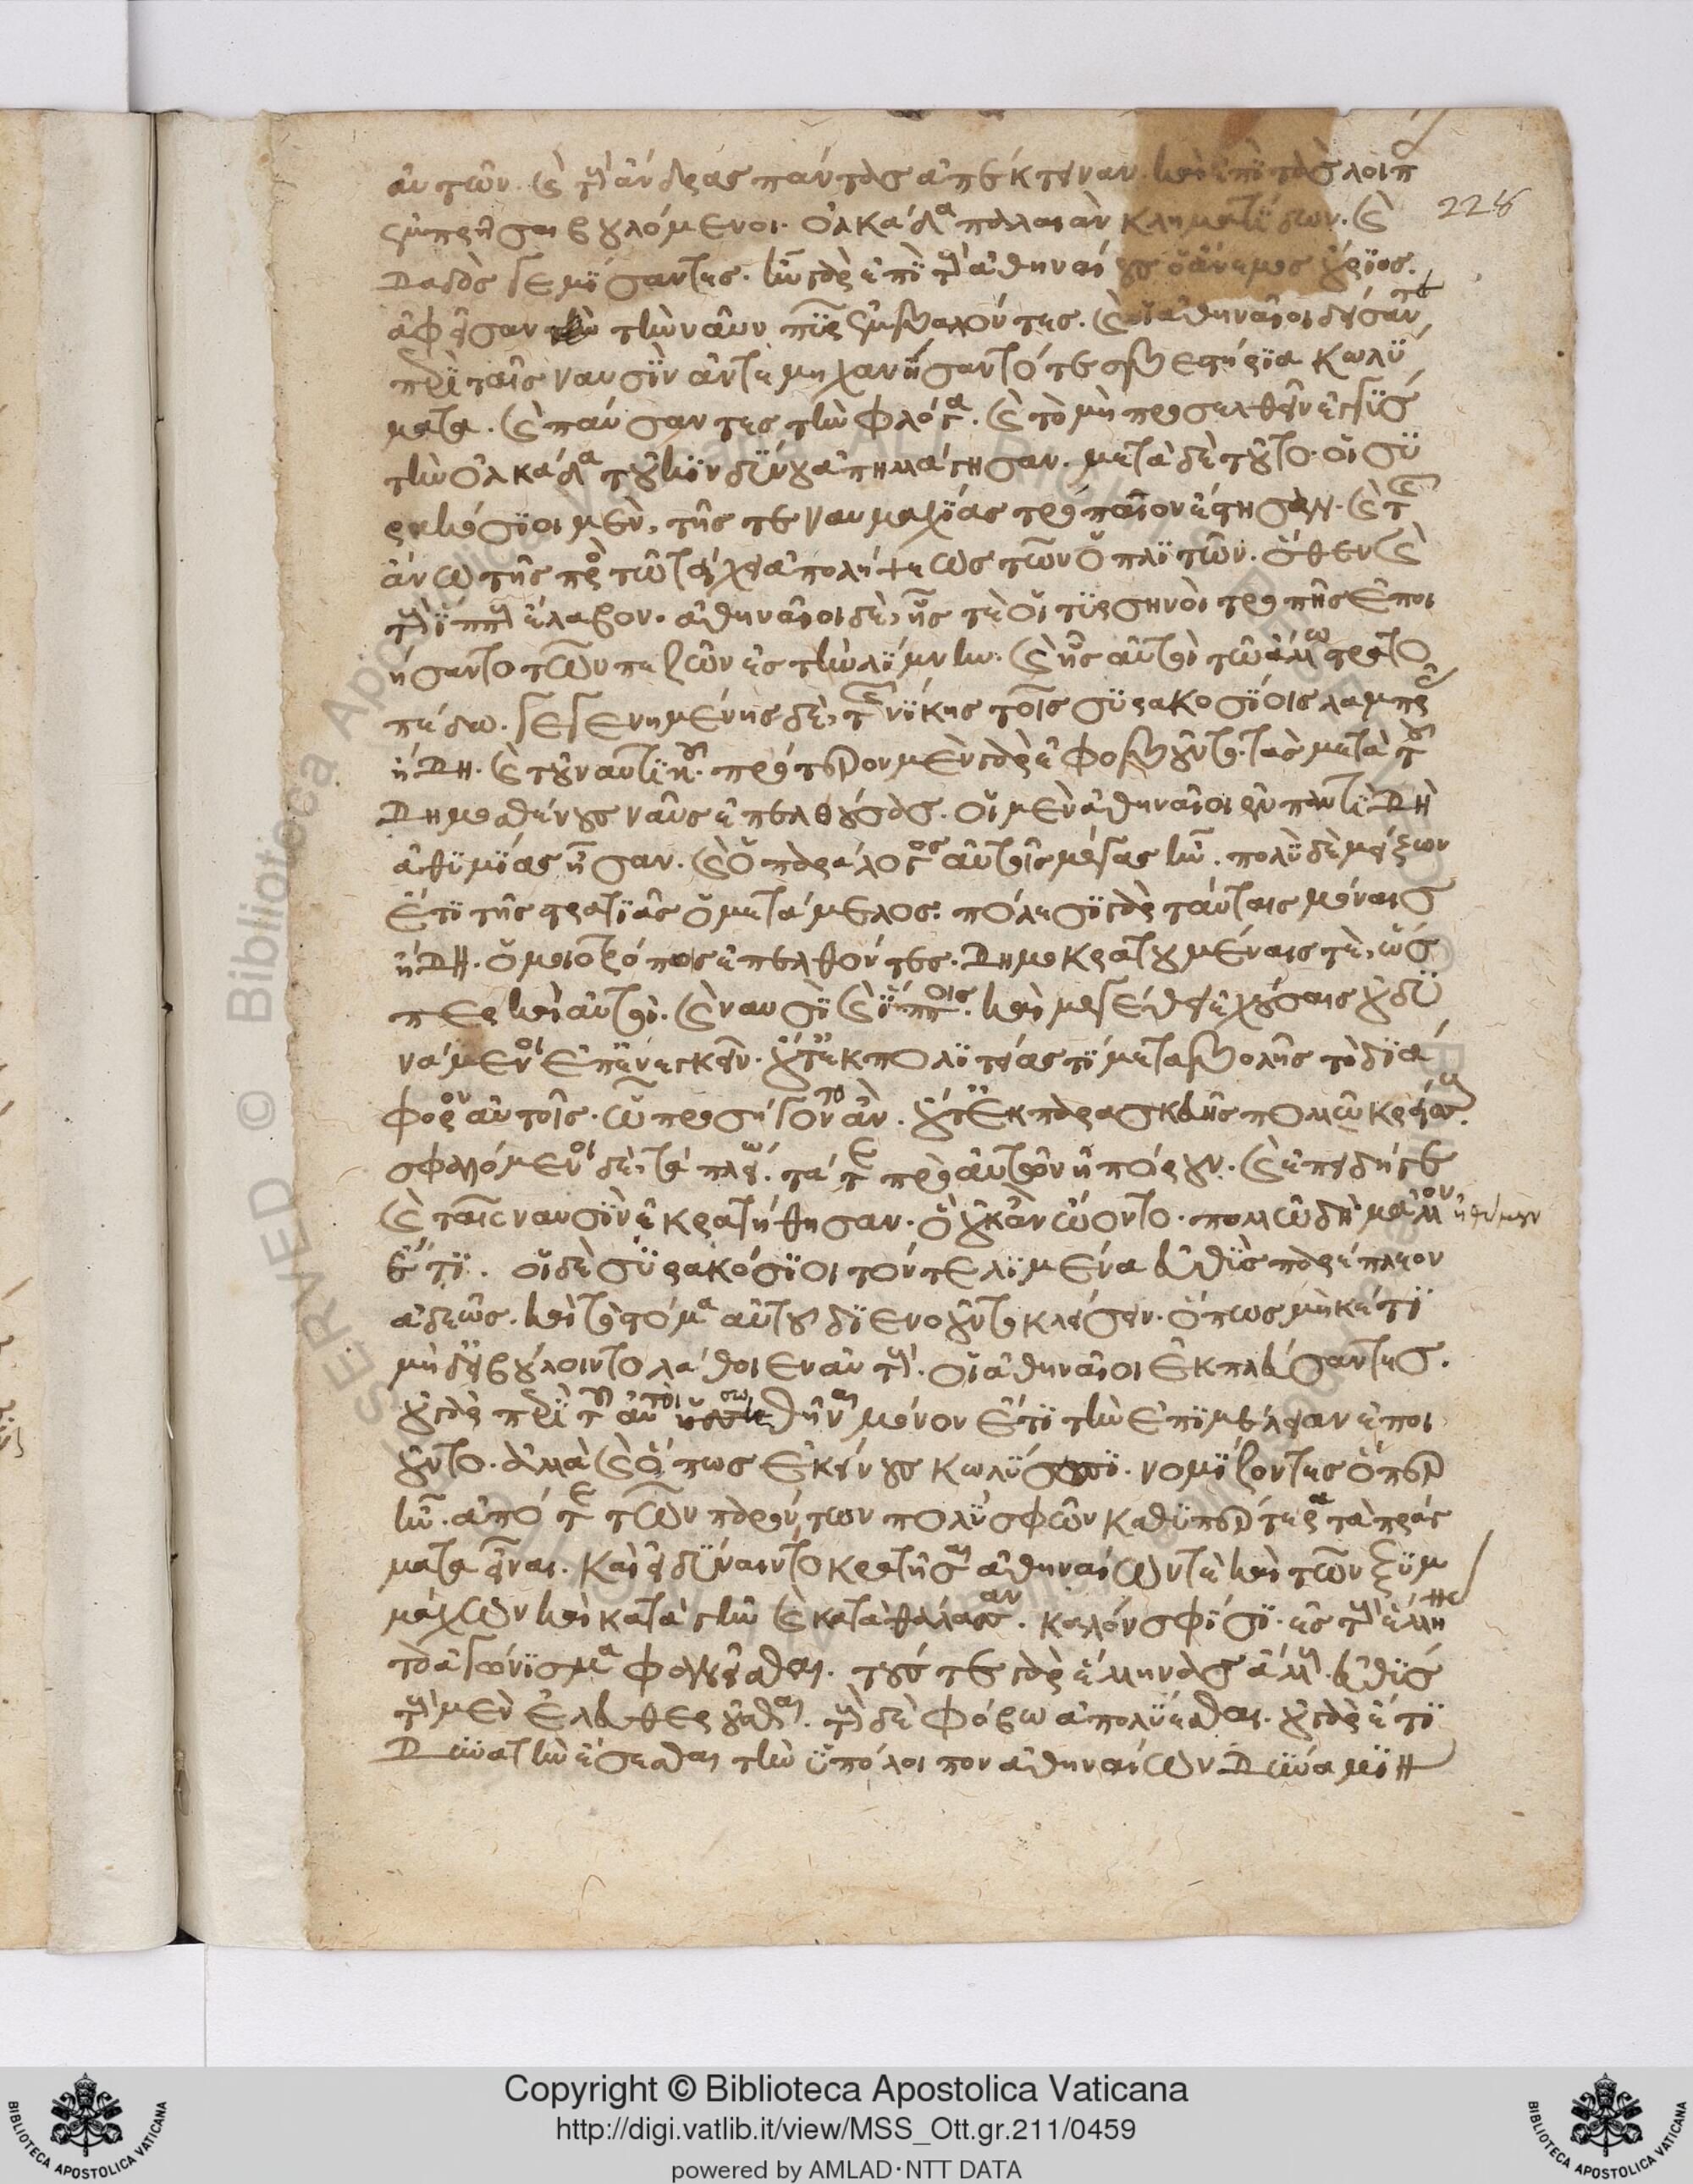 αὐτῶν. καὶ τοὺς ἄνδρας πάντας ἀπέκτειναν. καὶ ἐπὶ τὰς λοιπ
ἐμπρῆσαι βουλόμενοι. ὁλκάδα παλαιὰν κληματίδων. καὶ
228
δαδὸς γεμίσαντες. ἦν γὰρ ἐπὶ τοὺς ἀθηναίους ὁ ἄνεμος οὔριος.
ἀφεῖσαν τὴν ναῦν πῦρ ἐμβαλόντες. καὶ οἱ ἀθηναῖοι δείσαντες
περὶ ταῖς ναυσὶν ἀντεμηχανήσαντό τε σβεστήρια κωλύ
ματα. καὶ παύσαντες τὴν φλόγα. καὶ τὸ μὴ προσελθεῖν ἐγγὺς
τὴν ὁλκάδα τοῦ κινδύνου ἀπηλλάγησαν. μετὰ δὲ τοῦτο οἱ συ
ρακόσιοι μὲν, τῆς τε ναυμαχίας τροπαῖον ἔστησαν. καὶ τῆς
ἄνω τῆς πρὸς τῷ τείχει ἀπολήψεως τῶν ὁπλιτῶν. ὅθεν καὶ
τοὺς ἵππους ἔλαβον. ἀθηναῖοι δὲ, ἧς τε οἱ τυρσηνοὶ τροπῆς ἐποι
ήσαντο τῶν πεζῶν ἐς τὴν λίμνην. καὶ ἧς αὐτοὶ τῷ ἄλλῳ στρατο
πέδῳ. γεγενημένης δὲ, τῆς νίκης τοῖς συρακοσίοις λαμπρᾶς
ἤδη. καὶ τοῦ ναυτικοῦ. πρότερον μὲν γὰρ ἐφοβοῦντο τὰς μετὰ τοῦ
δημοσθένους ναῦς ἐπελθούσας. οἱ μὲν ἀθηναῖοι ἐν παντὶ δὴ
ἀθυμίας ἦσαν. καὶ ὁ παράλογος αὐτοῖς μέγας ἦν. πολὺ δὲ μείζων
ἔτι τῆς στρατιᾶς ὁ μετάμελος. πόλεσι γὰρ ταύταις μόναις
ἤδη. ὁμοιοτρόποις ἐπελθόντες. δημοκρατουμέναις τὲ, ὥς
περ καὶ αὐτοὶ. καὶ ναυσὶ καὶ ἵπποις. καὶ μεγέθει ἐχούσαις οὐ δυ
νάμενοι ἐπενεγκεῖν. οὔτ' ἐκ πολιτείας τί μεταβολῆς τὸ διά
φορον αὐτοῖς. ᾧ προσήγοντο ἄν. οὔτ' ἐκ παρασκευῆς πολλῷ κρείσσους.
σφαλλόμενοι δὲ, τὰ πλείω. τά τε πρὸ αὐτῶν ἠπόρουν. καὶ ἐπειδή γε
καὶ ταῖς ναυσὶν ἐκρατήθησαν. ὃ οὐκ ἂν ᾤοντο. πολλῷ δὴ μᾶλλον
ἔτι. οἱ δὲ συρακόσιοι τόν τε λιμένα εὐθὺς παρέπλεον
ἀδεῶς. καὶ τὸ στόμα αὐτοῦ διενοοῦντο κλείσειν. ὅπως μηκέτι
μηδ' εἰ βούλοιντο λάθοιεν αὐτοὺς οἱ ἀθηναῖοι ἐκπλεύσαντες.
οὐ γὰρ περὶ τοῦ αὐτοὶ σωθῆναι μόνον ἔτι τὴν ἐπιμέλειαν ἐποι
οῦντο. ἀλλὰ καὶ ὅπως ἐκείνους κωλύσωσι. νομίζοντες ὅπερ
ἦν. ἀπό τε τῶν παρόντων πολὺ σφῶν καθυπέρτερα τὰ πράγ
ματα εἶναι. καὶ εἰ δύναιντο κρατῆσαι ἀθηναίων τὲ καὶ τῶν ξυμ
μάχων καὶ κατὰ γῆν καὶ κατὰ θάλασσαν. καλὸν σφίσι. ἐς τοὺς ἕλληνας
τὸ ἀγώνισμα φανεῖσθαι. τούς τε γὰρ ἕλληνας ἄλλους. εὐθὺς
τοὺς μὲν ἐλευθεροῦσθαι. τοὺς δὲ φόβῳ ἀπολύεσθαι. οὐ γὰρ ἔτι
δυνατὴν ἔσεσθαι τὴν ὑπόλοιπον ἀθηναίων δύναμιν